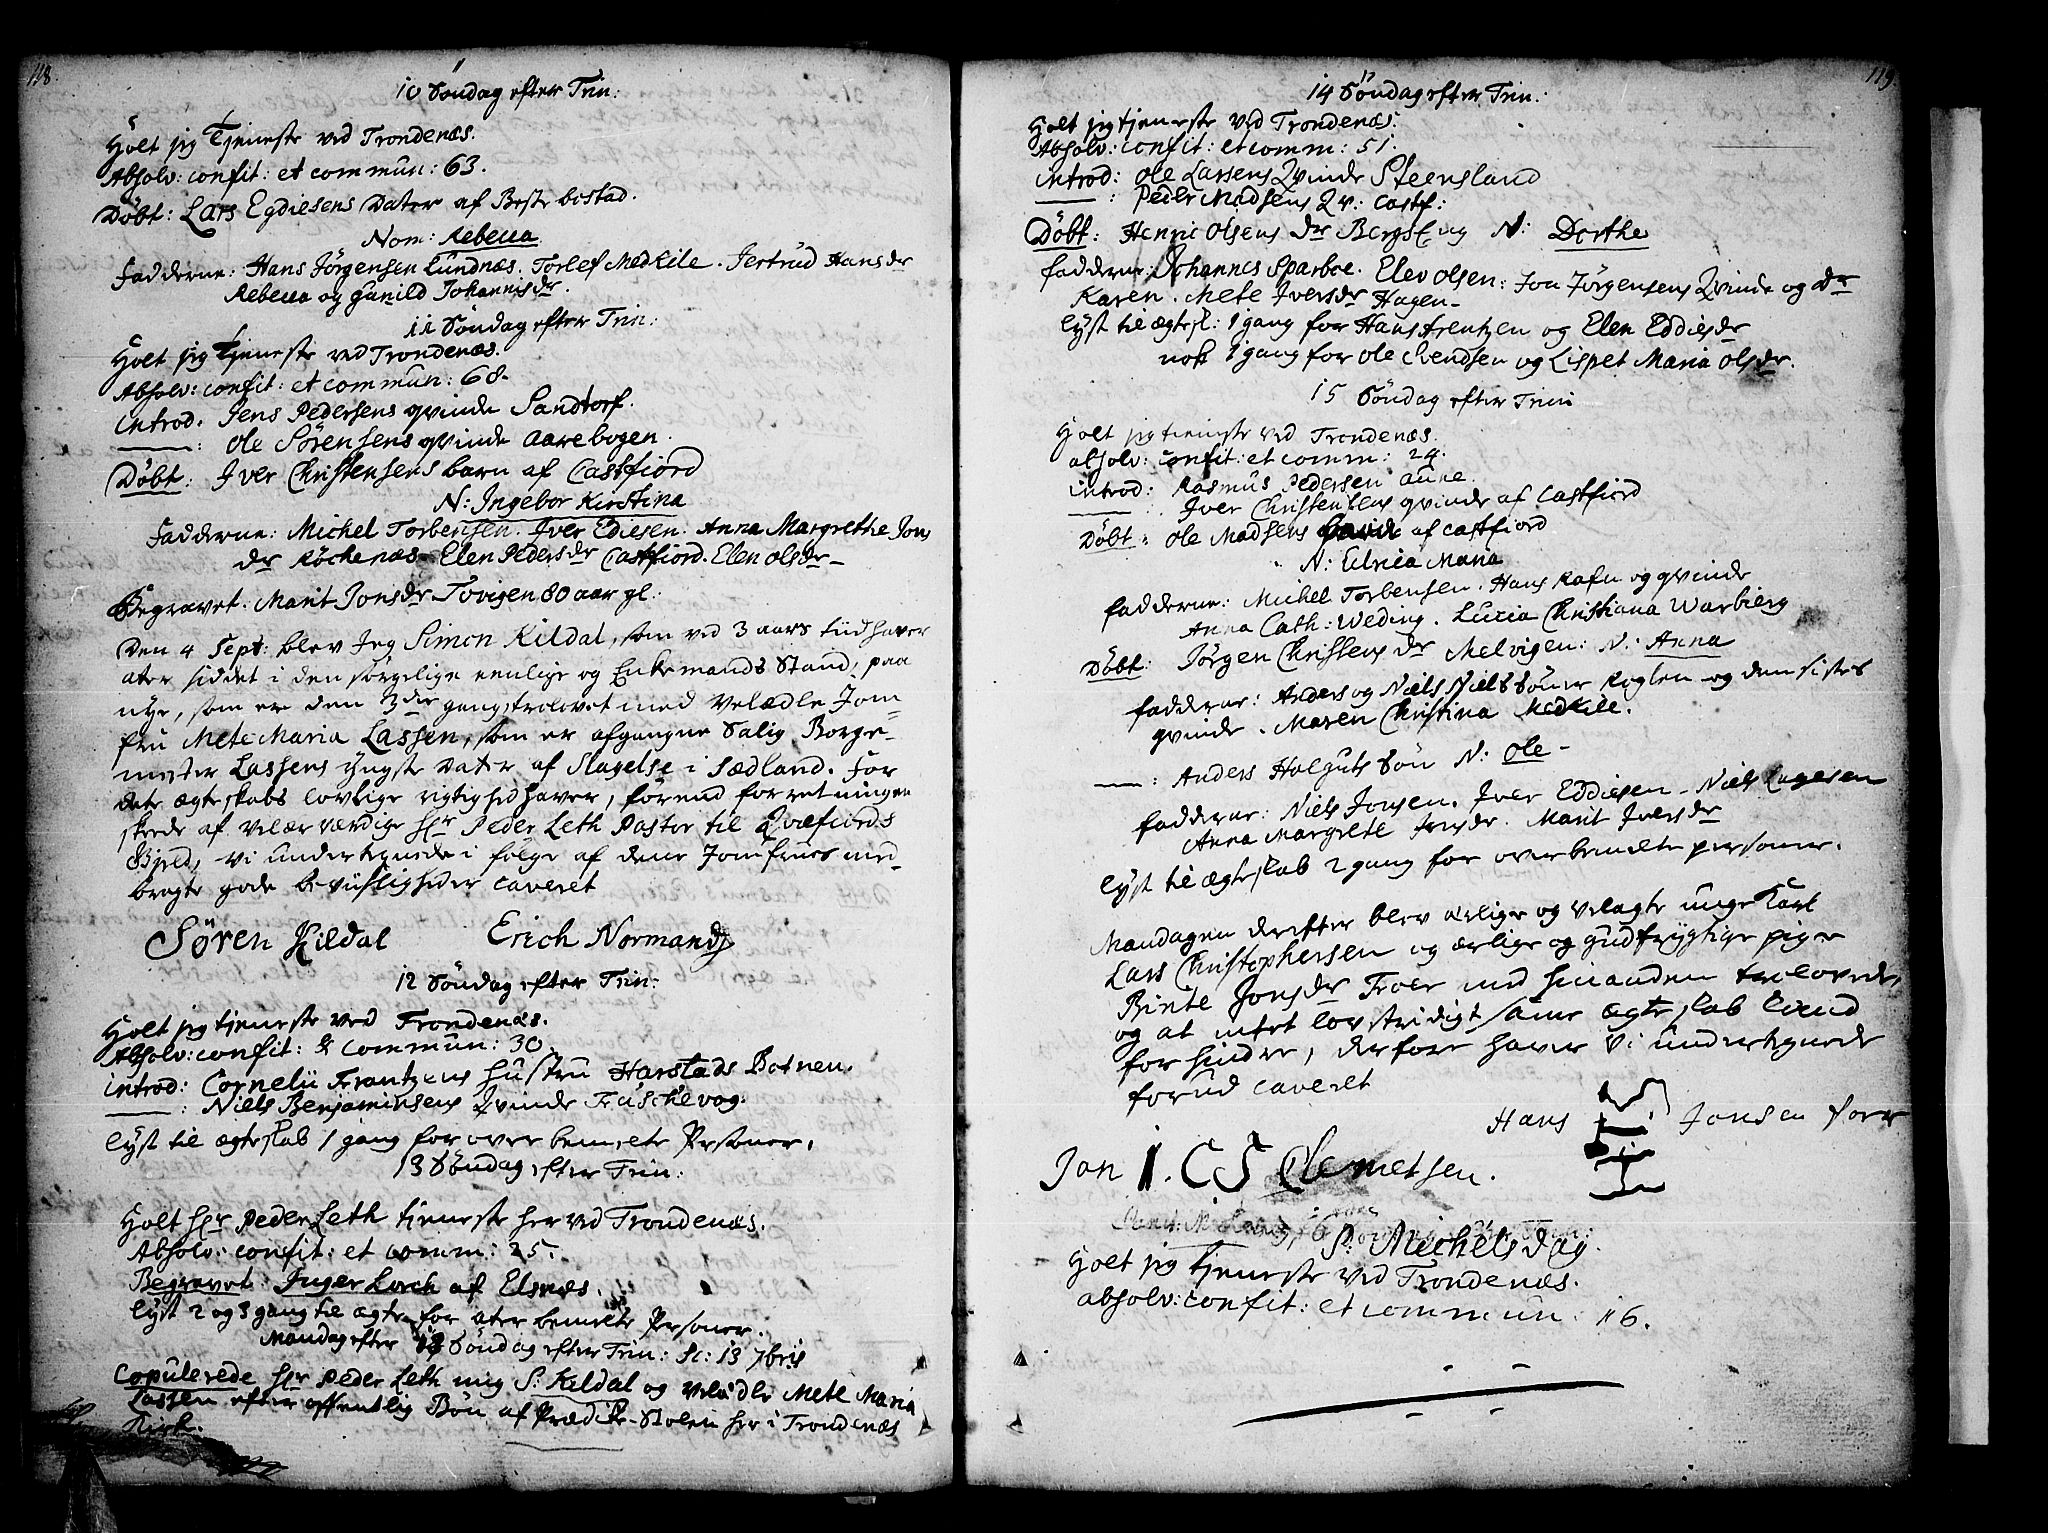 118.
10 Söndag efter Trin:
Holt jeg Tjeneste ved Trondenæs.
Absolv: confit: et commun: 63.
Döbt: Lars Egdiesens Dater af Beste bostad.
Nom: Rebecca
Fadderne: Hans Jörgensen Lundnæs. Torlef Medkile. Jertrud Hansdr
Rebecca og Gunild Johannisdr.
11 Söndag efter Trin:
Holt jeg Tjeneste ved Trondenæs.
Absolv: confit: et commun: 68.
introd. Jens Pedersens qvinde Sandtorf.
—: Ole Sörensens qvinde Aarebogen.
Döbt: Iver Christensens barn af Castfiord
N: Ingebor Kirstina
Fadderne: Michel Torbensen. Iver Ediesen. Anna Margrethe Jons
dr Röckenæs. Elen Pedersdr Castfiord. Elen Olsdr
Begravet. Marit Jonsdr Tovigen 80 aar gl.
Den 4 Sept: blev Jeg Simon Kildal, som ved 3 aars tiid haver
ater siddet i den sørgelige eenlige og Enkemands Stand, paa
nye, som er den 3die gang, trolovet med Velædle Jom=
fru Mete Maria Lassen, som er afgangne Salig Borge-
mester Lassens yngste Dater af Slagelse i Sædland. For
dete ægteskabs lovlige rigtighed haver, førend forretningen
skeede af Velærværdige Hr Peder Leth Pastor til Qvæfiords
Gjeld, vi underteignede i følge af dene Jomfrues med-
bragte gode beviisligheder caveret
Sören Kildal Erich Normand
12 Söndag efter Trin:
Holt jeg tjeneste ved Trondenæs.
Absolv: confit: & commun: 30
introd: Cornelii Frantzens hustru Harstads Botnen.
—: Niels Benjaminsens Qvinde Fuschevog.
lyst til ægteskab 1 gang for over bemelte Personer.
13 Söndag efter Trin:
Holt Hr Peder Leth tjeneste her ved Trondenæs.
Absolv: confit: et comm: 25.
Begravet: Inger Lorch af Elsnæs.
lyst 2 og 3 gang til ægte for ater bemelte Personer.
Mandag efter 13 Söndag efter Trin: Sc: 13 7bris
Copulerede Hr Peder Leth mig S: Kildal og Velædle Mete Maria
Lassen efter offentlig Bön af Prædike-Stolen her i Trondenæs
Kirke.
119.
14 Söndag efter Trin:
Holt jeg tjeneste ved Trondenæs.
Absolv: confit: et comm: 51.
introd: Ole Larsens Qvinde Steensland
—: Peder Madsens Qv: Castf:
Döbt: Henric Olsens dr Bergseng N: Dorthe
fadderne: Johannes Sparboe. Elev Olsen: Jon Jörgensens Qvinde og dr
Karen. Mete Iversdr Hagen
lyst til ægtesk: 1 gang for Hans Arentzen og Elen Eddiesdr
nok 1 gang for Ole Svendsen og Lispet Maria Olsdr.
15 Söndag efter Trin
Holt jeg tieneste ved Trondenæs.
absolv: confit: et comm: 24.
introd: Rasmus Pedersen Aune.
—: Iver Christensens qvinde af Castfiord
Döbt: Ole Madsens af Castfiord
N: Elrica Maria
fadderne: Michel Torbensen. Hans Rafn og qvinde
Anna Cath: Weding. Lucia Christiana Warbierg
Döbt: Jörgen Christens dr Melvigen: N: Anna
fadderne: Anders og Niels Niels Sönner Roglen og den sistes
qvinde. Maren Christina Medkile.
—: Anders Holguts Sön N: Ole
fadderne: Niels Jonsen. Iver Eddiesen. Niels Lagesen
Anna Margrete Jensdr. Marit Iversdr
lyst til ægteskab 2 gang for over bemelte personer.
Mandagen derefter blev ærlige og velagte unge Karl
Lars Christophersen og ærlige og gudfrygtige pige
Birte Jonsdr Troer med hinanden trolovede,
og at intet lovstridigt samme ægteskab kund
forhindre, derfore haver vi underteignede
forud caveret
Hans Jonsen Soer
Jon I. C S Clemetsen.
St: Michels Dag.
Holt jeg tjeneste ved Trondenæs.
absolv: confit: et commun: 16.